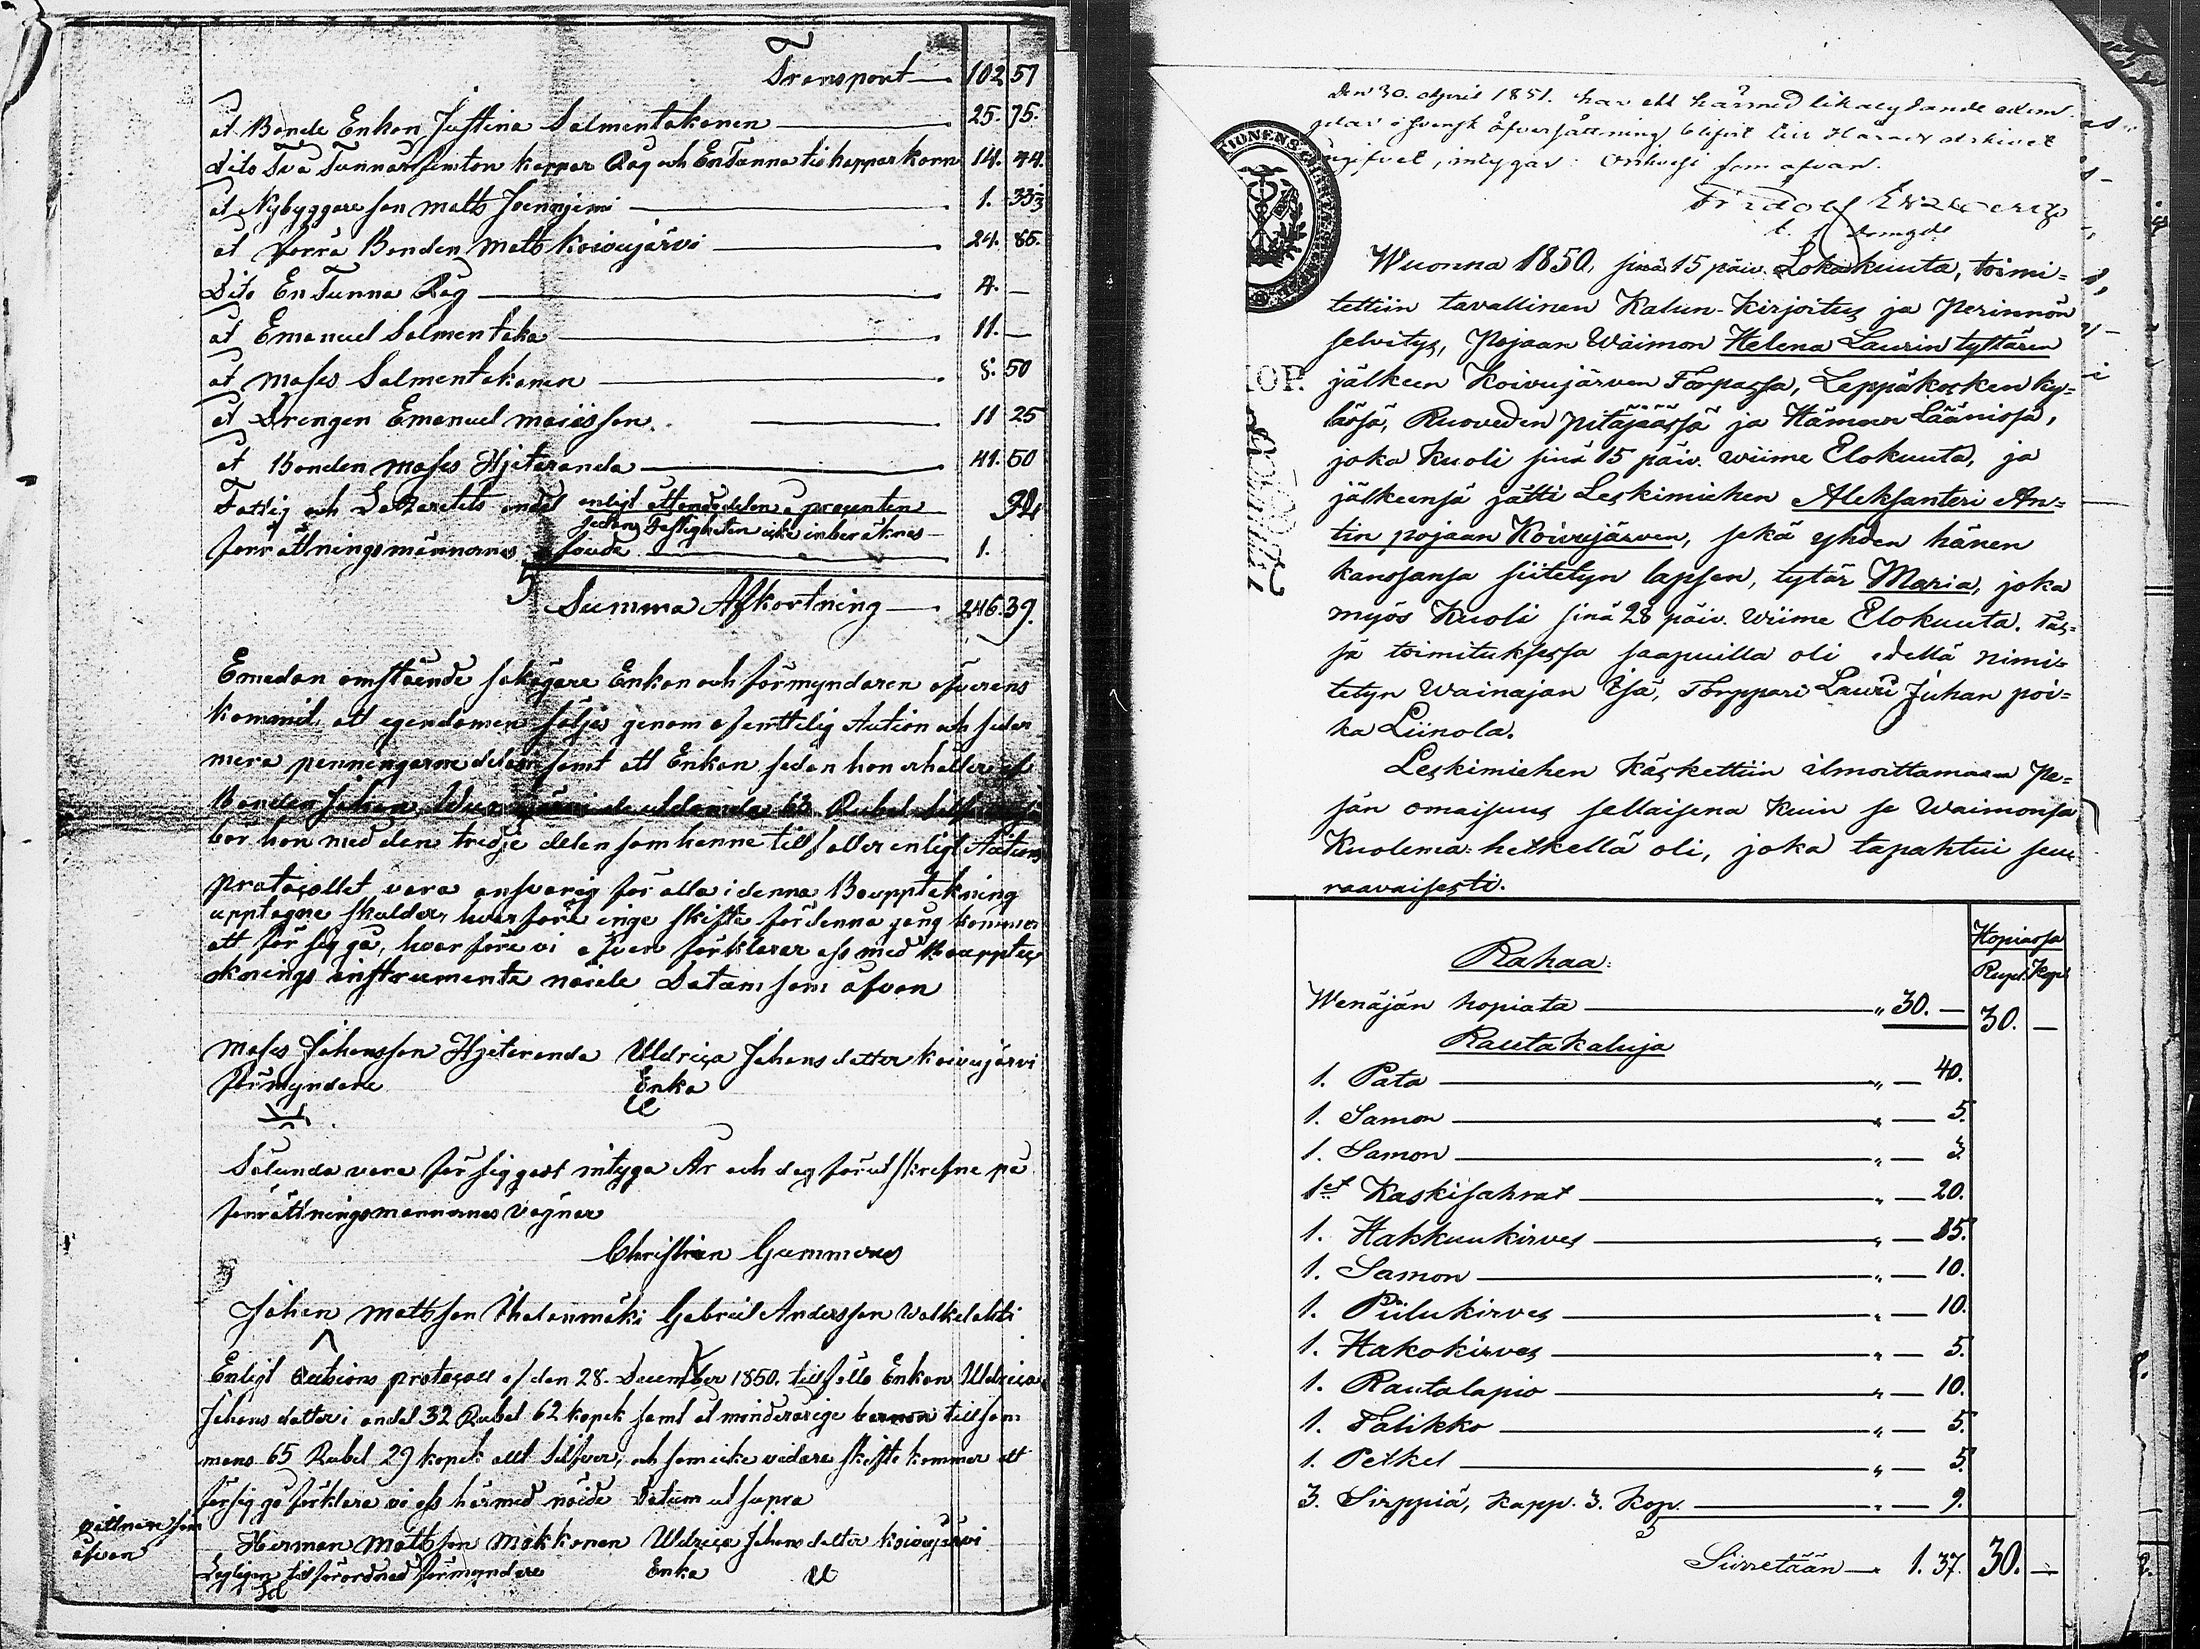 Transport 102 57
at Bonde Enkan Justina Salmentakanen 25. 75.
Dito Två Tunnor femton kappar Råg och En Tunna tio kappar korn 14. 44.
at Nybyggare son Matts Joenniemi 1. 33⅓
at förra Bonden Matts Koivujärvi 24. 85.
Dito En Tunna Råg 4. —
at Emanuel Salmentaka 11. —
at Moses Salmentakanen 8. 50
at Drengen Emanuel 11 25
at Bonden Moses Hjeteranda 41. 50
Fattig och Lazaretts andel enligt ottondedelen a procenten
sedan fastigheten icke inberäknas
förrättningsmännernes 1.
Summa Afkortning 246. 39.
Emedan omstående sakägare Enkan och förmyndaren öfverens
kommit att egendomen säljes genom offenttelig Auktion och sedan
mera penningarne delas samt att Enkan sedan hon erhåller af
Bonden Johan 63 Rubel
bör hon med den tredje delen som henne tillfaller enligt Auktions
protocollet vara ansvarig för alla i denna Bouppteckning
upptagne skulder, hvarföre inge skifte för denna gång kommer
att för sig gå, hvarföre vi äfven förklarar oss med Bouppteck
nings instrumente nöide Datum som ofvan
Moses Johansson Hjeteranda Uldrica Johans dotter Koivujärvi
förmyndare Enka
Sålunda vara för sig gået intyga År och dag förut skrefne på
förrättningsmannernes vägnar
Christian Gummerus
Johan Mattsson Gabriel Andersson
Enligt Auctions protocoll af den 28. December 1850. tillfalle Enkan Uldrica
Johans dotter i andel 32 Rubel 62 kopek samt at minderårige barnen tillsam-
mans 65 Rubel 29 kopek allt Silfver, och som icke vidare skifte kommer att
för sig gå förklare vi oss härmed nöide Datum ut supra
vittnen som
ofvan
Herman Mattsson Makkonen Uldrica Johans dotter Koivujärvi
Lagligen tillförordnad förmyndare Enka
Den 30. April 1851. har ett härmed lika lydande exem-
plar i svensk öfversättning blifvit till Härads arkivet
ingifvet, intygar: Orihvesi som ofvan.
Fridolf
Wuonna 1850, sinä 15 päiv. Lokakuuta, toimi-
tettiin tavallinen Kalun-Kirjoitus ja Perinnön
selvitys, Pojaan Waimon Helena Laurin tyttären
jälkeen Koivujärven Torpassa, Leppäkosken ky-
OP.
lässä, Ruoveden pitäjäässä ja Hämeen Läänissä,
joka Kuoli sinä 15 päiv. wiime Elokuuta, ja
jälkeensä jätti Leskimiehen Aleksanteri An-
tin pojaan Koivujärven, sekä yhden hänen
kanssansa siitetyn lapsen, tytär Maria, joka
myös Kuoli sinä 28 päiv. wiime Elokuuta. Täs-
sä toimituksessa saapuilla oli edellä nimi-
tetyn Wainajan Isä, Torppari Lauri Juhan poi-
ka Liinola.
Leskimiehen Käskettiin ilmoittamaan Pe-
sän omaisuus sellaisena Kuin se Waimonsa
Kuolema-hetkellä oli, joka tapahtui seu-
raavaisesti.
Hopiassa
Rupl. Kop.
Rahaa:
Wenäjän hopiata " 30. — 30. —
Rautakaluja
1. Pata " — 40.
1. Samon " — 5.
1. Samon " — 3.
1et Kaskisahrat " — 20.
1. Hakkuukirves " — 15.
1. Samon " — 10.
1. Piilukirves " — 10.
1. Hakokirves " — 5.
1. Rautalapio " — 10.
1. Talikko " — 5.
1. Petkel " — 5.
3. Sirppiä, Kapp. 3. Kop. " — 9.
Siirretään — 1. 37. 30. —